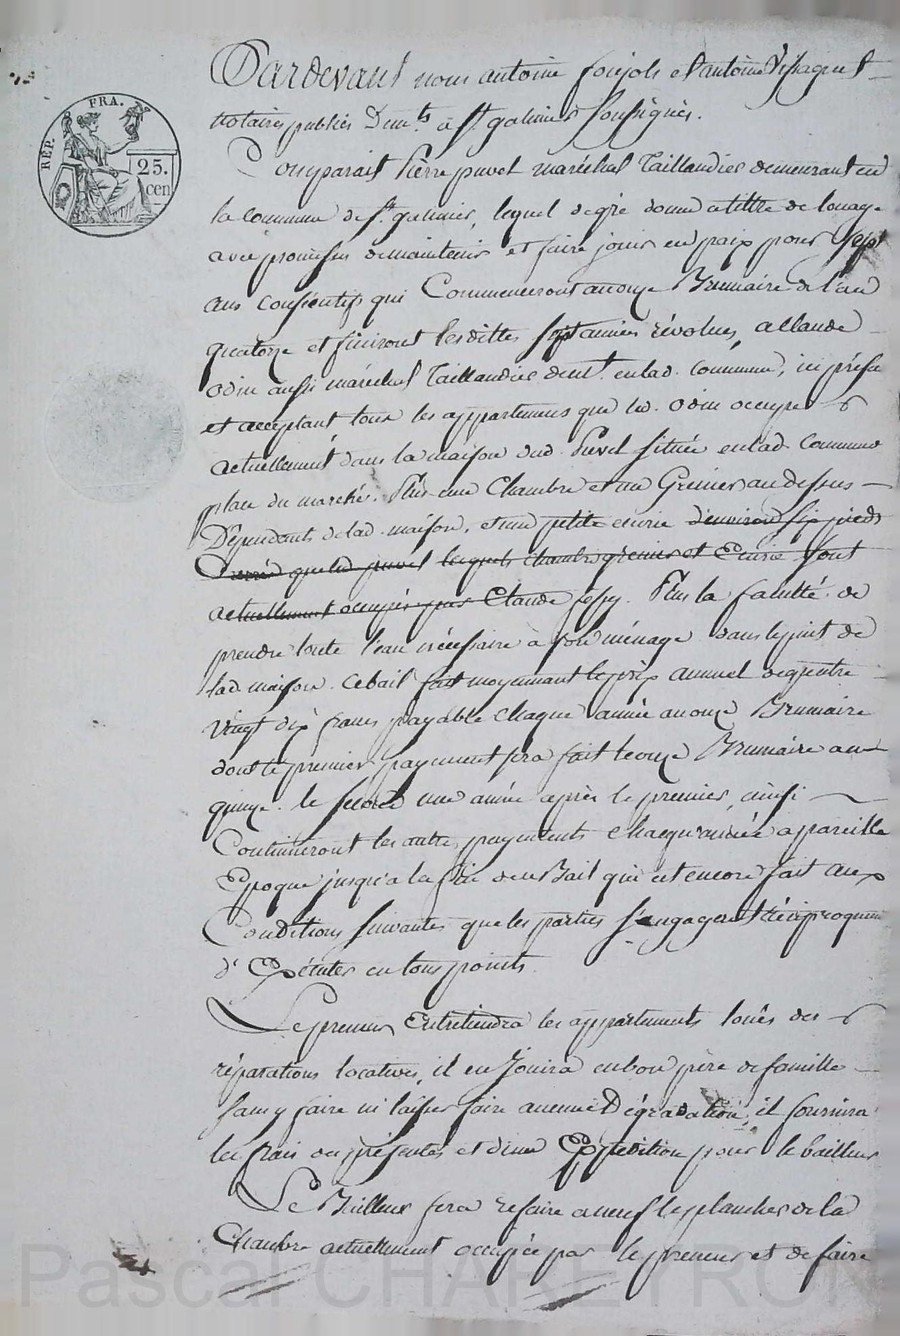 RÉP. FRA.
25.
cen
Pardevant nous antoine foujols et antoine
notaires publics Dem.ts à st. galmier soussignés.
Comparait Pierre puvel maréchal Taillandier demeurant en
la commune de st. galmier, lequel de gré donne a tittre de louage
avec promesses de maintenir et faire jouir en paix pour sept
ans consécutifs qui Commenceront au onze Brumaire de l'an
quatorze et finiront lesdittes sept années révolues, a Claude
odin aussi maréchal Taillandier demt. en lad. Commune, ici présen
et acceptant tous les appartemens que led. odin occupe
actuellement dans la maison dud. Puvel située en lad. Commune
place du marché. Plus une Chambre et un Grenier au dessus
Dépendants de lad. maison, et une petite ecurie d'environ six pieds
que led. puvel lesquels chambre grenier et Ecurie sont
actuellement occupés par Claude fessy. Plus la faculté de
prendre toute l'eau nécessaire à son ménage dans le puit de
lad. maison. Ce bail fait moyennant le prix annuel de quatre
Vingt dix francs payable chaque année au onze Brumaire
dont le premier payement sera fait le onze Brumaire an
quinze. le second une année après le premier, ainsi
Continueront les autres payements chaqu'année a pareille
Epoque jusqu'a la fin du Bail qui est encore fait aux
Conditions suivantes que les parties s'engagent réciproquem
d'Exécuter en tous points.
Le preneur Entretiendra les appartements loués des
réparations locatives, il en Jouira en bon père de famille
sans y faire ni laisser faire aucune Dégradation, il fournira
les frais des présentes et d'une Expédition pour le bailleur
Le Bailleur fera refaire a neuf le plancher de la
Chambre actuellement occupée par le preneur et de faire
Pascal CHAREYRON